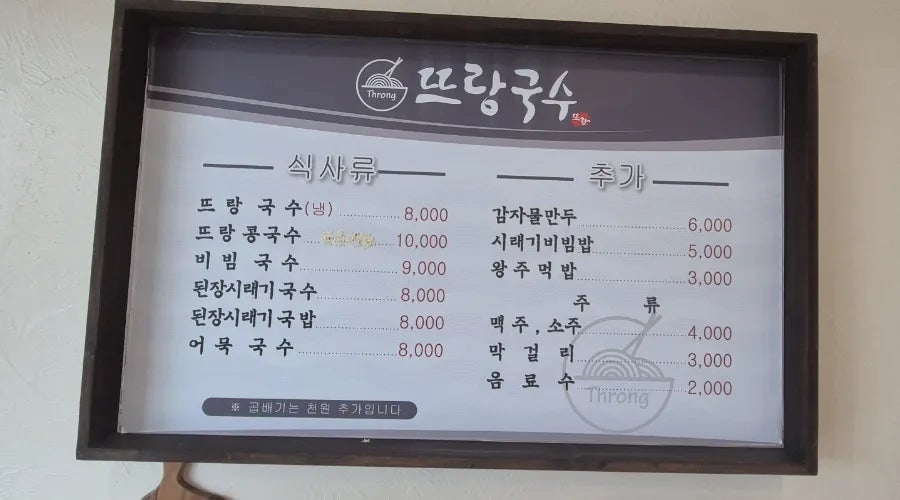 Throng
뜨랑국수
뜨랑
식사류
뜨랑 국수(냉) 8,000
뜨랑콩국수 10,000
비빔 국수 9,000
된장시래기국수 8,000
된장시래기국밥 8,000
어묵 국수 8,000
※ 곱배기는 천원 추가입니다
추가
감자물만두 6,000
시래기비빔밥 5,000
왕주먹밥 3,000
주 류
맥주,소주 4,000
막걸리 3,000
음료수 2,000
Throng